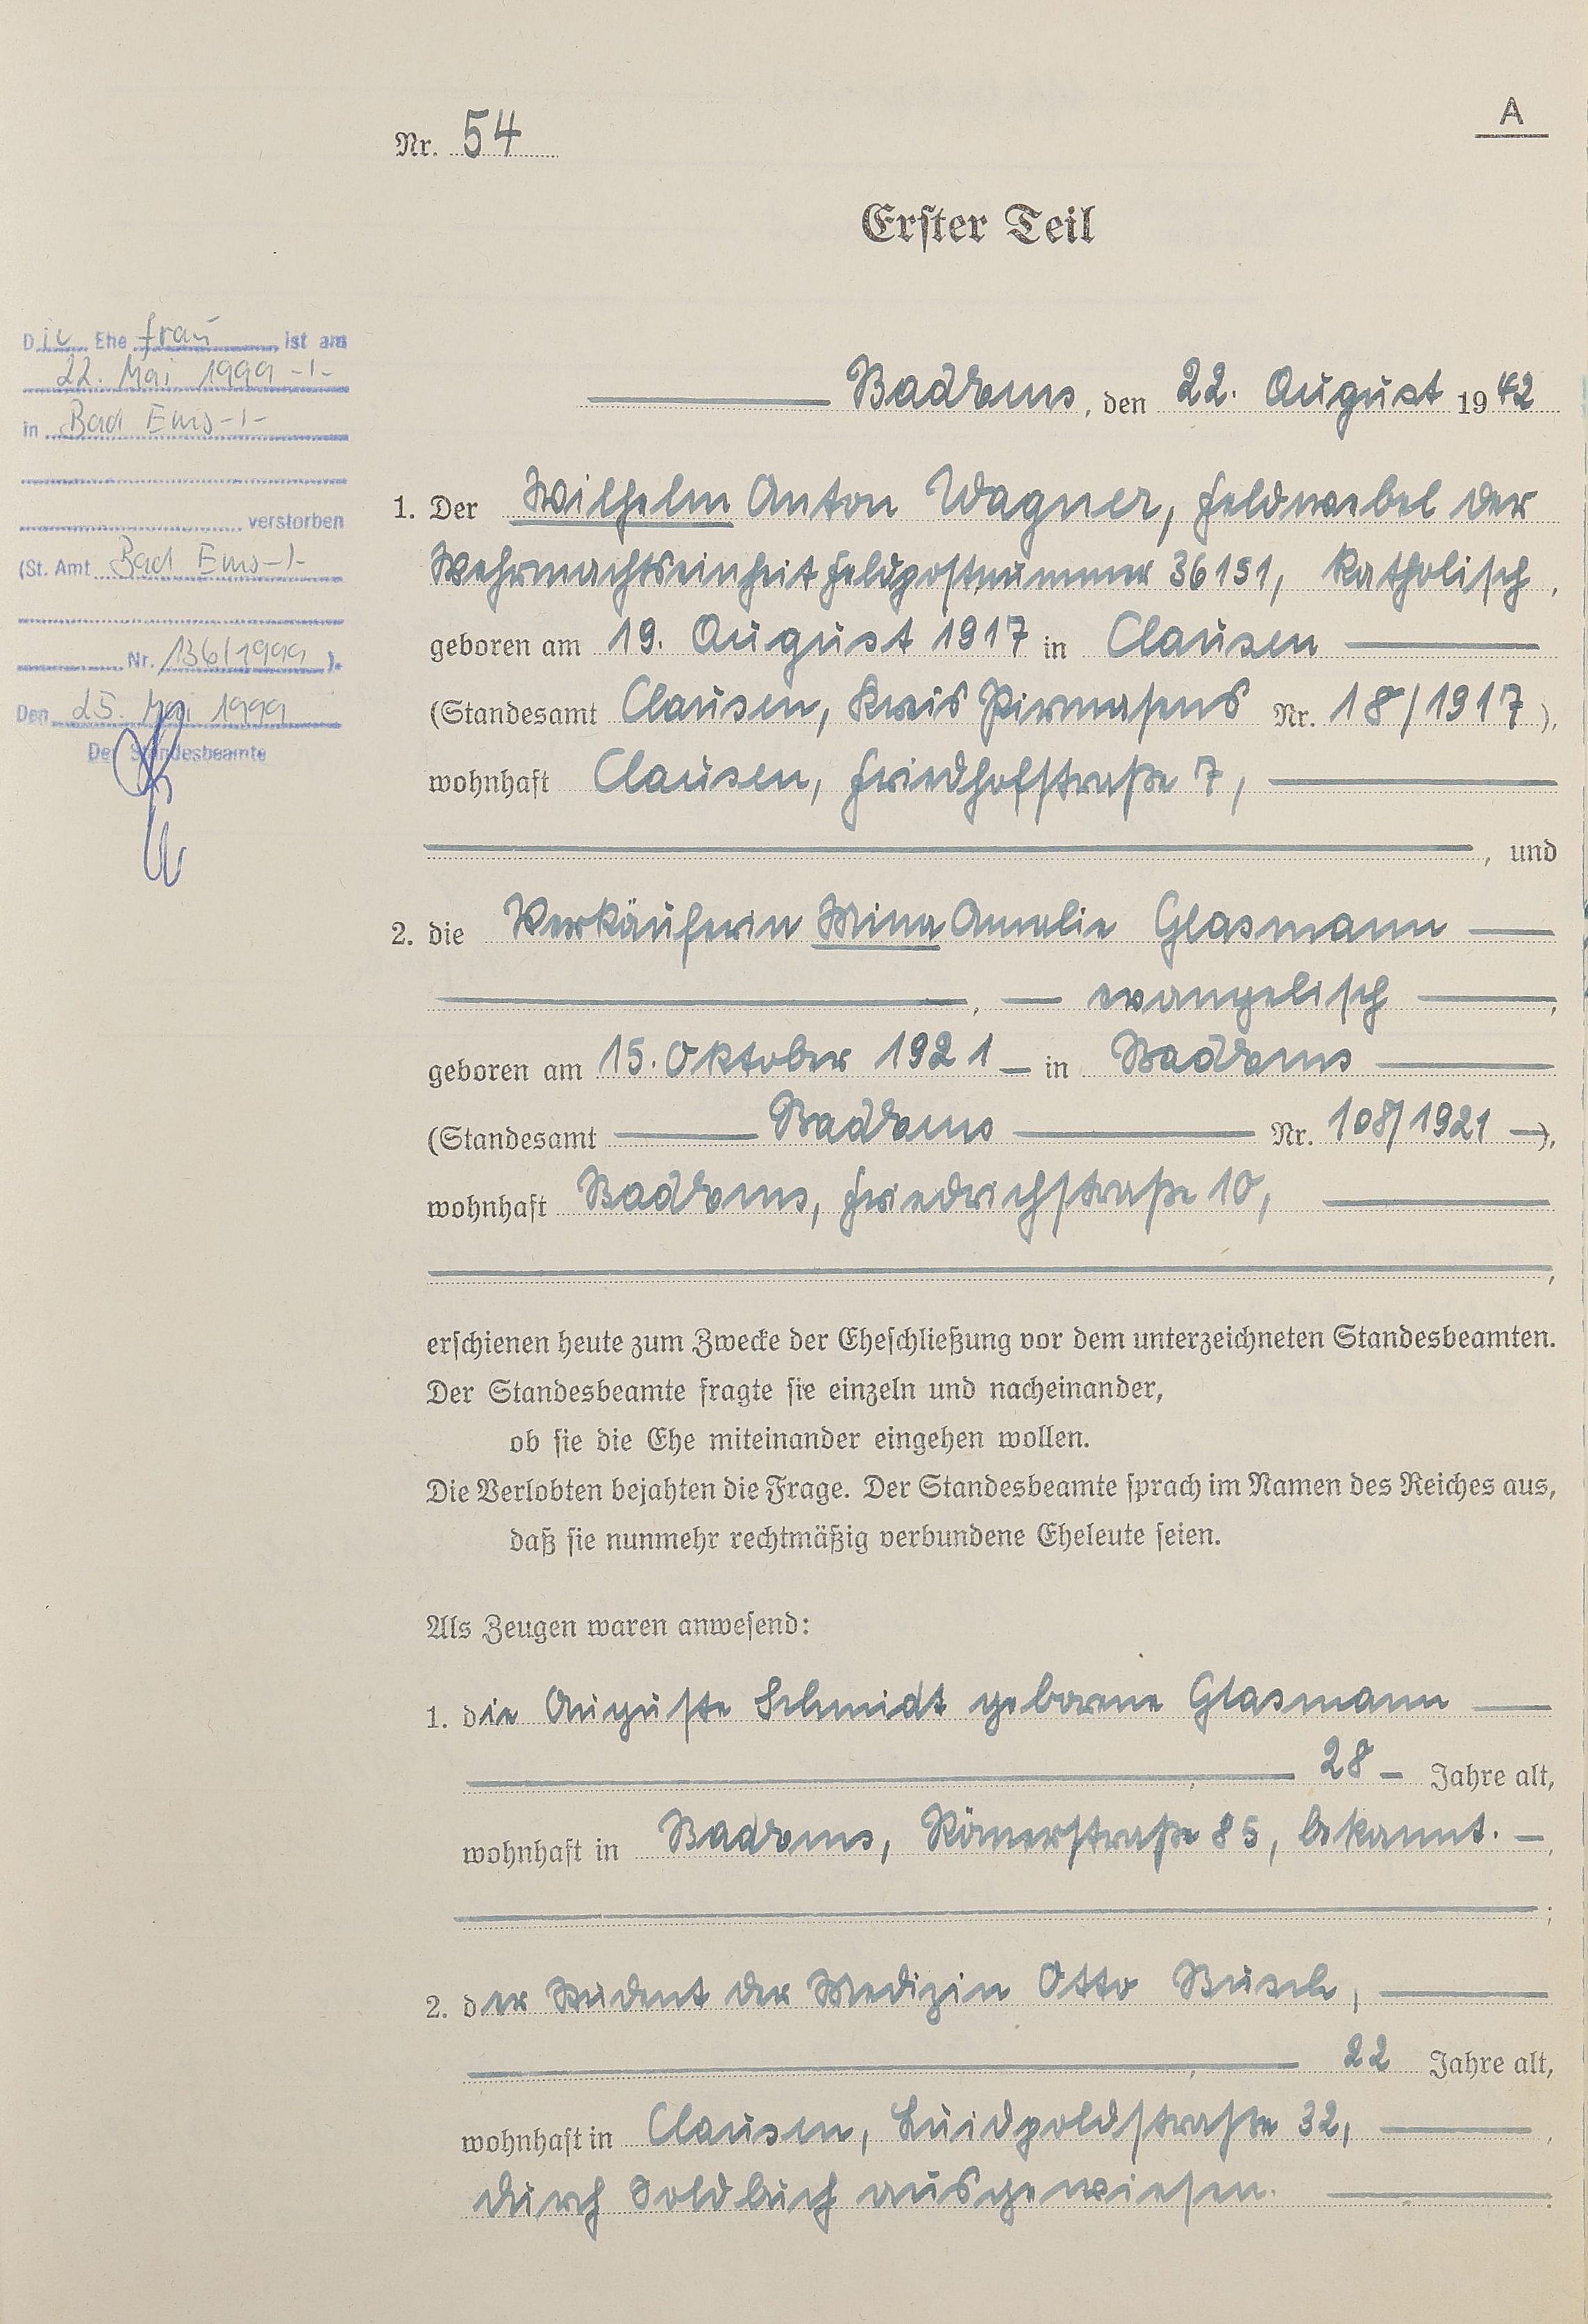 A
Nr. 54
Erster Teil
Die Ehefrau ist am
22. Mai 1999 -/-
in Bad Ems -/-
verstorben
(St. Amt Bad Ems -/-
Nr. 136/1999 ).
Den 25. Mai 1999
Der Standesbeamte
Bad Ems, den 22. August 1942
1. Der Wilhelm Anton Wagner, Feldwebel der
Wehrmachtseinheit Feldpostnummer 36151, katholisch,
geboren am 19. August 1917 in Clausen
(Standesamt Clausen, Kreis Pirmasens Nr. 18/1917),
wohnhaft Clausen, Friedhofstraße 7,
, und
2. die Verkäuferin Mina Amalie Glasmann
, evangelisch ,
geboren am 15. Oktober 1921 in Bad Ems
(Standesamt Bad Ems Nr. 108/1921),
wohnhaft Bad Ems, Friedrichstraße 10,
,
erschienen heute zum Zwecke der Eheschließung vor dem unterzeichneten Standesbeamten.
Der Standesbeamte fragte sie einzeln und nacheinander,
ob sie die Ehe miteinander eingehen wollen.
Die Verlobten bejahten die Frage. Der Standesbeamte sprach im Namen des Reiches aus,
daß sie nunmehr rechtmäßig verbundene Eheleute seien.
Als Zeugen waren anwesend:
1. die Auguste Schmidt geborene Glasmann
, 28 Jahre alt,
wohnhaft in Bad Ems, Römerstraße 85, bekannt. ,
;
2. der Student der Medizin Otto Busch,
, 22 Jahre alt,
wohnhaft in Clausen, Luidpoldstraße 32, ,
durch Soldbuch ausgewiesen.